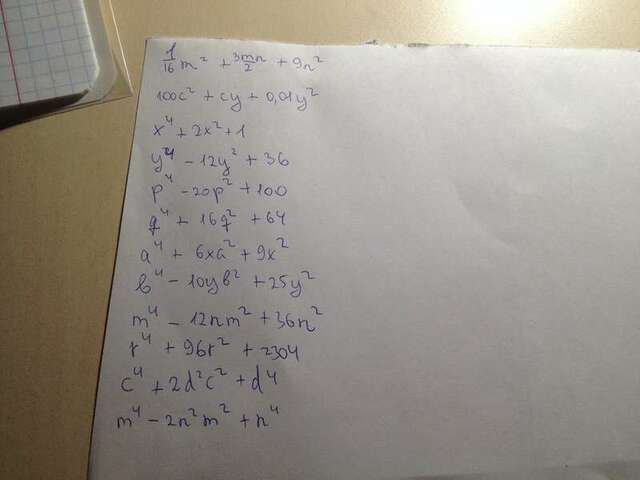 1/16 m² + 3mn/2 + 9n²
100c² + cy + 0,01y²
x⁴ + 2x² + 1
y⁴ - 12y² + 36
p⁴ - 20p² + 100
q⁴ + 16q² + 64
a⁴ + 6xa² + 9x²
b⁴ - 10yb² + 25y²
m⁴ - 12nm² + 36n²
r⁴ + 96r² + 2304
c⁴ + 2d²c² + d⁴
m⁴ - 2n²m² + n⁴